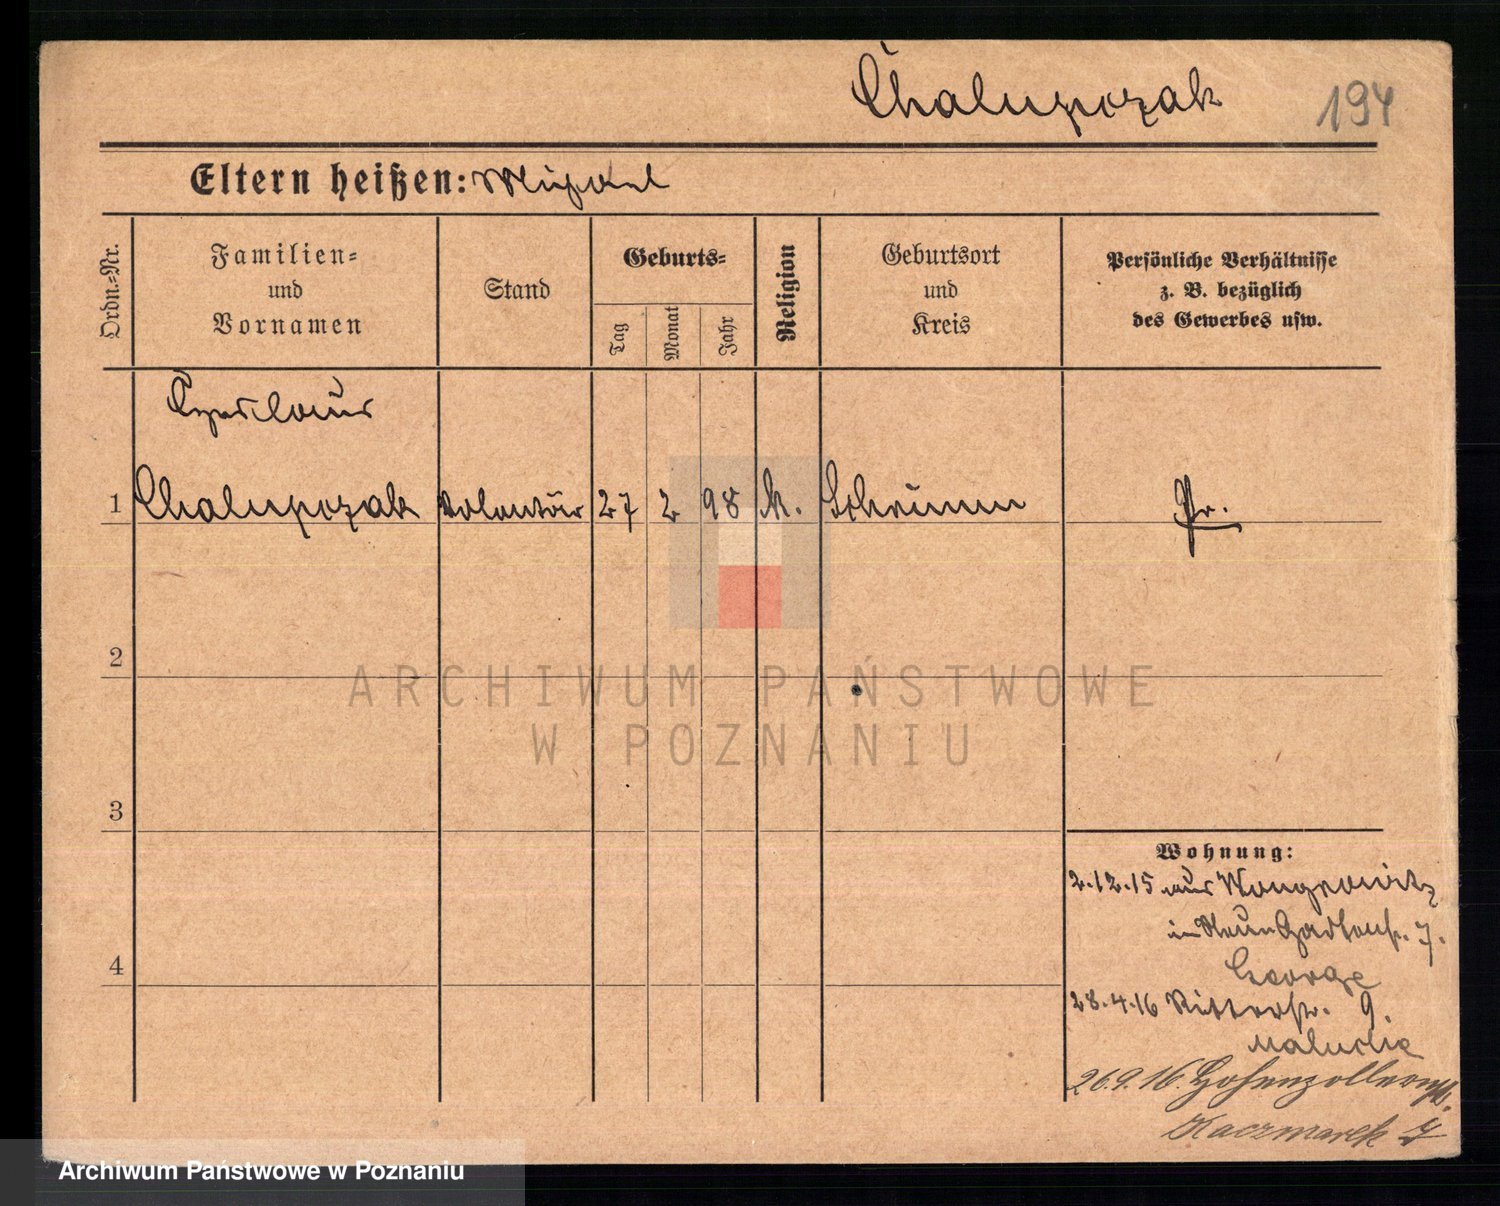 Chalupczak 194
Eltern heißen: Michael
Ordn.-Nr.
Familien-
und
Vornamen
Stand
Geburts-
Tag
Monat
Jahr
Religion
Geburtsort
und
Kreis
Persönliche Verhältnisse
z. B. bezüglich
des Gewerbes usw.
Czeslaus
1 Chalupczak Volontär 27 2 98 k. Schrimm Pr.
2
ARCHIWUM PAŃSTWOWE
W POZNANIU
3
Wohnung:
2.12.15 aus Wongrowitz
in Neue Gartenstr. 7.
4
George
28.4.16 Ritterstr. 9.
26.9.16. Hohenzollernstr.
Kaczmarek
Archiwum Państwowe w Poznaniu